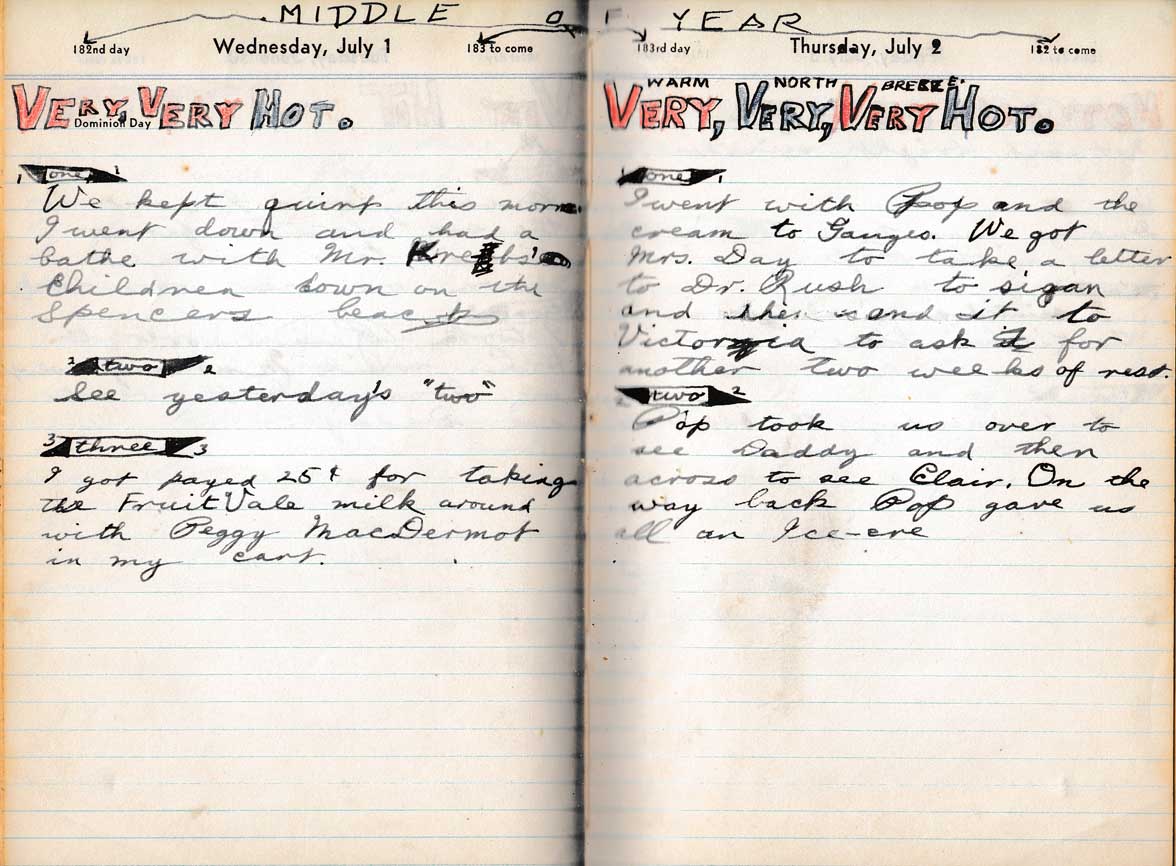 MIDDLE OF YEAR
182nd day Wednesday, July 1 183 to come
VERY, VERY HOT.
Dominion Day
1 one 1
We kept quint this morn
I went down and had a
bathe with Mr. Krebbs's
Children down on the
Spencers beach
2 two 2
See yesterday's "two"
3 three 3
I got payed 25¢ for taking
the FruitVale milk around
with Peggy MacDermot
in my cart.
183rd day Thursday, July 2 182 to come
WARM NORTH BREEZE.
VERY, VERY, VERY HOT.
1 one 1
I went with Pop and the
cream to Ganges. We got
Mrs. Day to take a letter
to Dr. Rush to sigan
and then send it to
Victoria to ask for
another two weeks of rest.
2 two 2
Pop took us over to
see Daddy and then
across to see Clair. On the
way back Pop gave us
all an Ice-cre